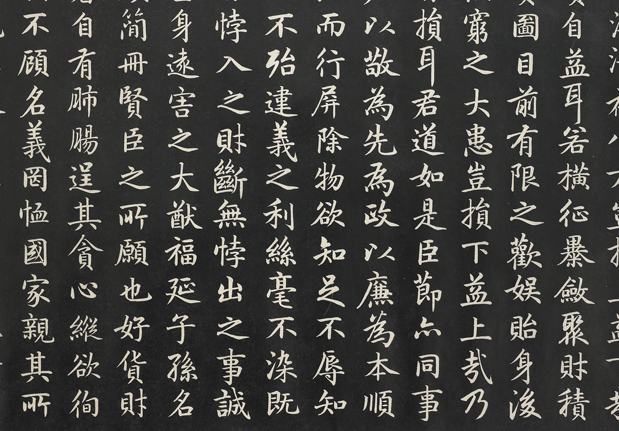 自益耳若橫征暴斂聚財積
圖目前有限之歡娛貽身後
窮之大患豈損下益上哉乃
損耳君道如是臣節亦同事
以敬為先為政以廉為本順
而行屏除物欲知足不辱知
不殆違義之利絲毫不染既
悖入之財斷無悖出之事誠
身遠害之大猷福延子孫名
簡冊賢臣之所願也好貨財
自有肺腸逞其貪心縱欲徇
不顧名義罔恤國家親其所